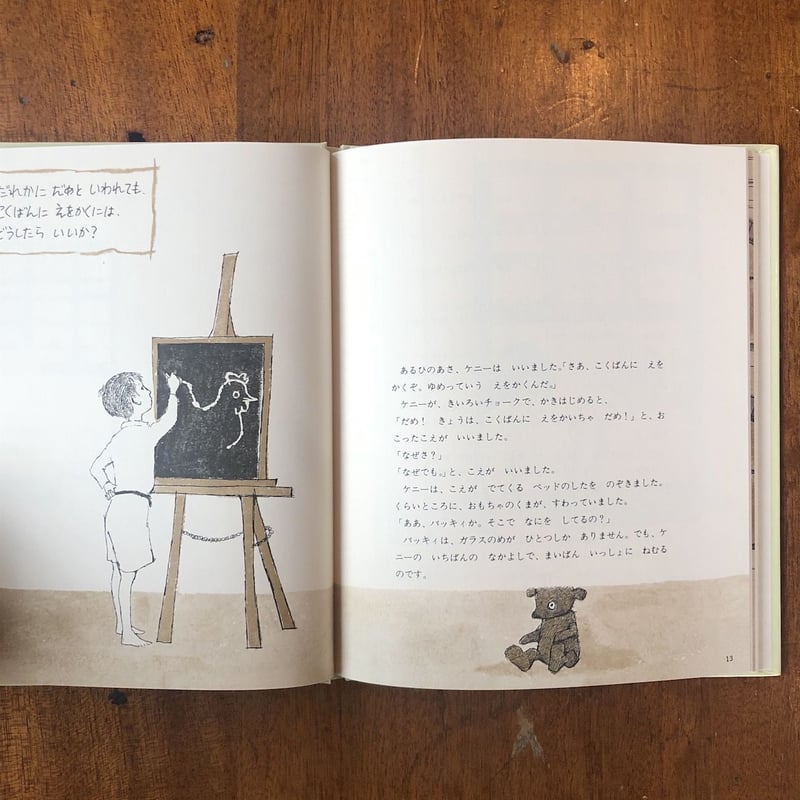 だれかに だめと いわれても、
こくばんに えをかくには、
どうしたら いいか?
あるひのあさ、ケニーは いいました。「さあ、こくばんに えを
かくぞ。ゆめっていう えをかくんだ。」
ケニーが、きいろいチョークで、かきはじめると、
「だめ! きょうは、こくばんに えをかいちゃ だめ!」と、お
こったこえが いいました。
「なぜさ?」
「なぜでも。」と、こえが いいました。
ケニーは、こえが でてくる ベッドのしたを のぞきました。
くらいところに、おもちゃのくまが、すわっていました。
「ああ、バッキィか。そこで なにを してるの?」
バッキィは、ガラスのめが ひとつしか ありません。でも、ケ
ニーの いちばんの なかよしで、まいばん いっしょに ねむる
のです。
13